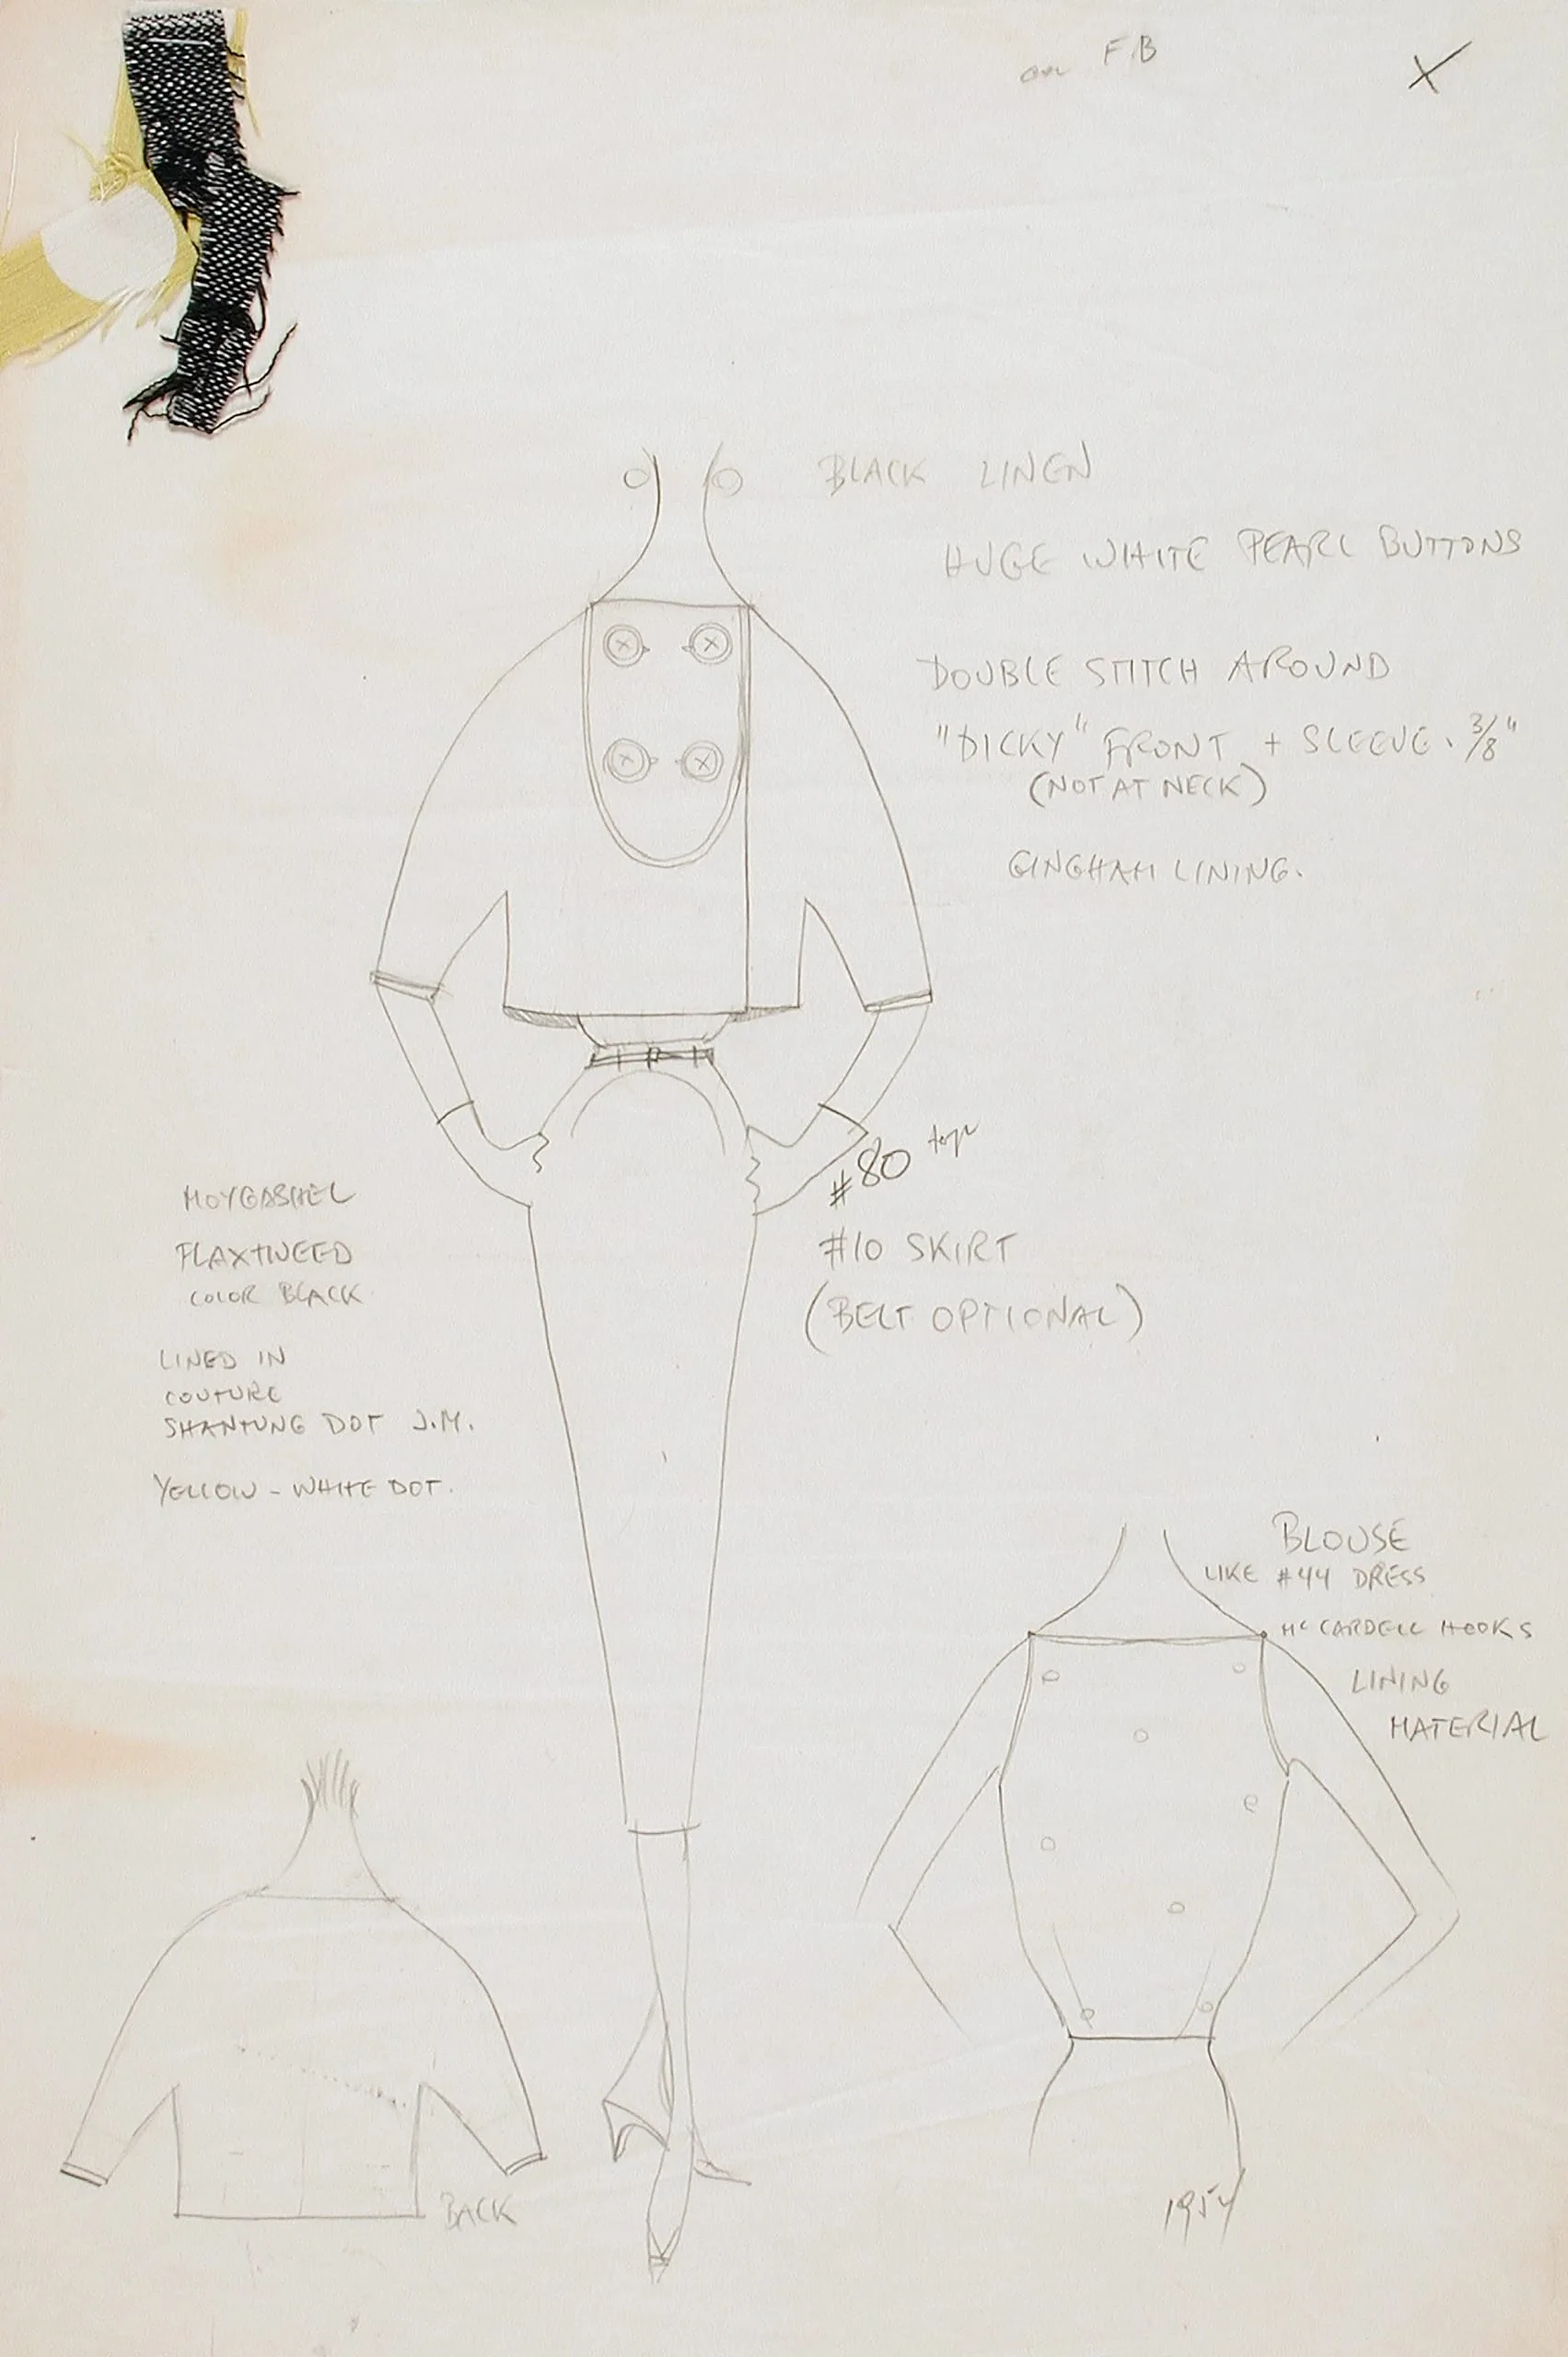 on F.B
X
BLACK LINEN
HUGE WHITE PEARL BUTTONS
DOUBLE STITCH AROUND
"DICKY" FRONT + SLEEVE. 3/8"
(NOT AT NECK)
GINGHAM LINING.
#80 top
#10 SKIRT
(BELT OPTIONAL)
MOYGASHEL
FLAXTWEED
COLOR BLACK
LINED IN
COUTURE
SHANTUNG DOT J.M.
YELLOW - WHITE DOT.
BLOUSE
LIKE #44 DRESS
McCARDELL HOOKS
LINING
MATERIAL
BACK
1954